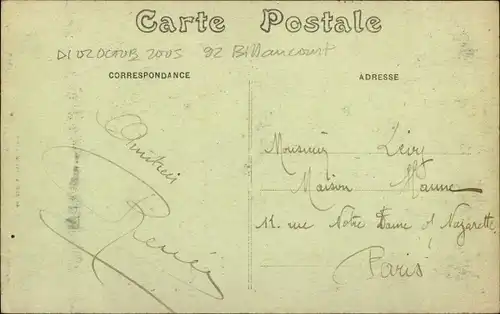 Carte Postale
DI 02 OCTOB 2005 92 Billancourt
CORRESPONDANCE
ADRESSE
Amitiés
Renée
Monsieur Lévy
Maison
11. rue Notre Dame d Nazarette
Paris